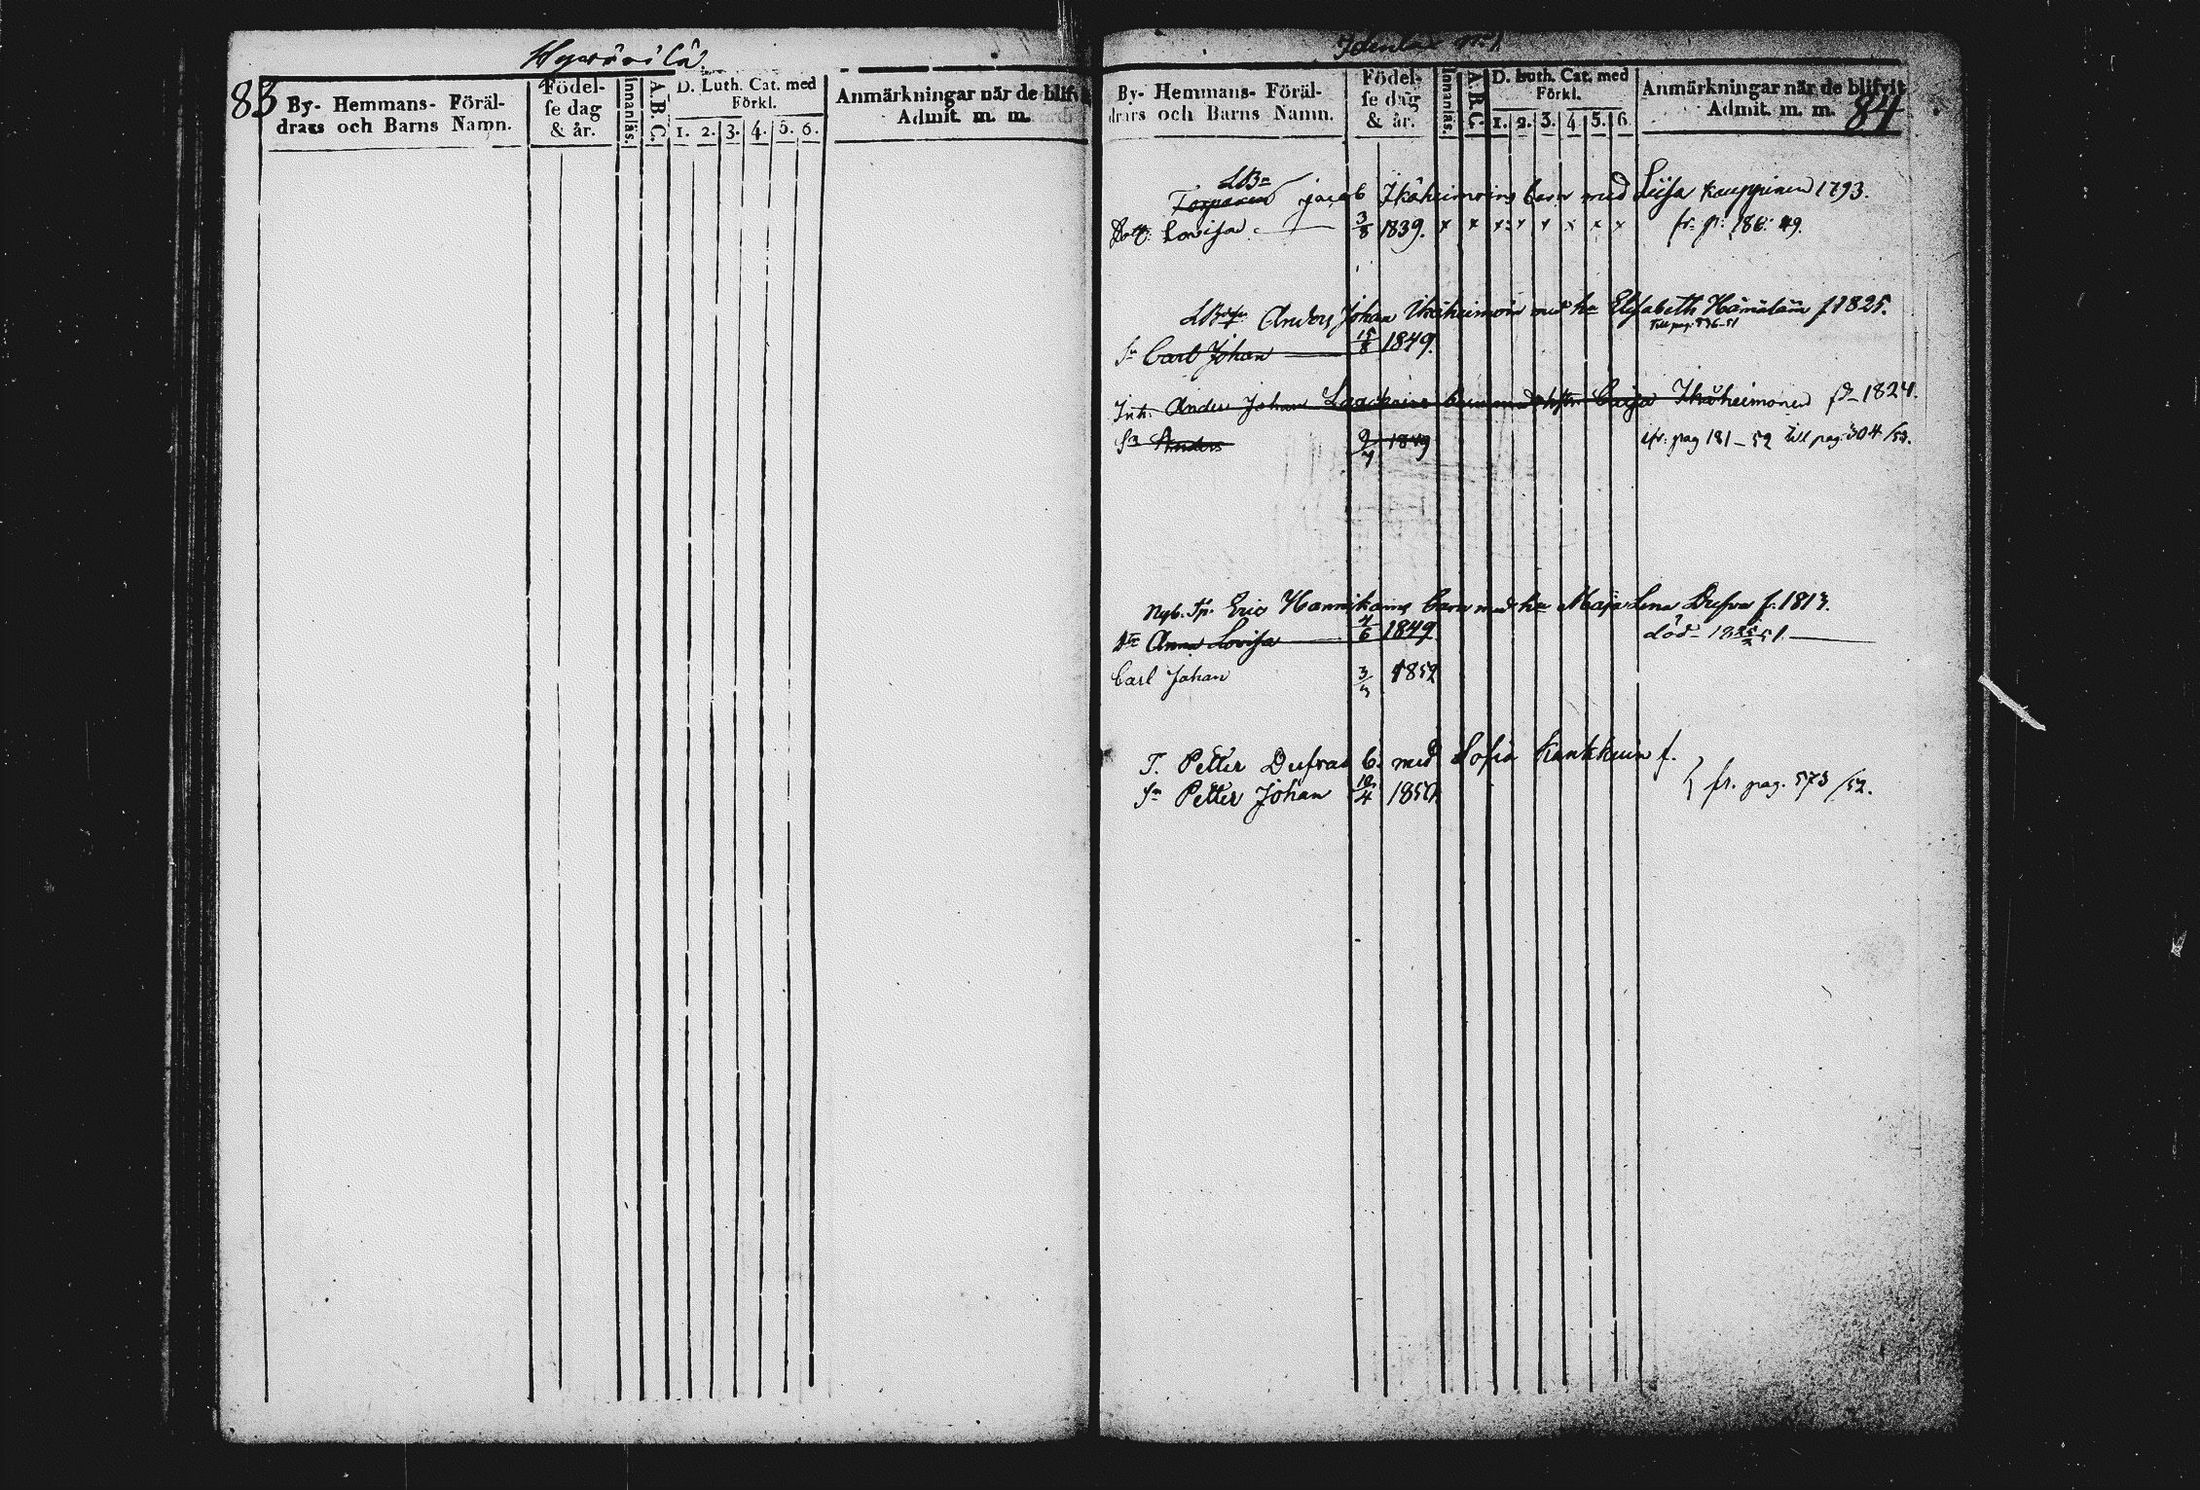 83
By- Hemmans- Föräl-
drars och Barns Namn.
Födel-
se dag
& år.
Innanläs.
A. B. C.
D. Luth. Cat. med
Förkl.
1. 2. 3. 4. 5. 6.
Anmärkningar när de blifvit
Admit. m. m.
84
By- Hemmans- Föräl-
drars och Barns Namn.
Födel-
se dag
& år.
Innanläs.
A. B. C.
D. Luth. Cat. med
Förkl.
1. 2. 3. 4. 5. 6.
Anmärkningar när de blifvit
Admit. m. m.
Jacob Ikäheimoins barn med Liisa Kauppinen 1793.
Lovisa 3/8 1839. x x x x x x x x fr. p: 186: 49.
Anders Johan Ikäheimoin med hu Elisabeth Hämäläin f 1825.
Sn Carl Johan 15/8 1849.
Inh. Anders Johan barn med Caisa Ikäheimonen 1824.
Sn Anders 9/7 1849 ifr: pag 181-52 till pag: 304/53.
Nyb. Eric Hannikains barn med hu Maja Lena Dufva f. 1813.
Dr Anna Lovisa 4/6 1849 död
Carl Johan 3/5 1852
T. Petter Dufvas b. med Sofia f.
Sn Petter Johan 10/4 1850 fr. pag. 573/52.